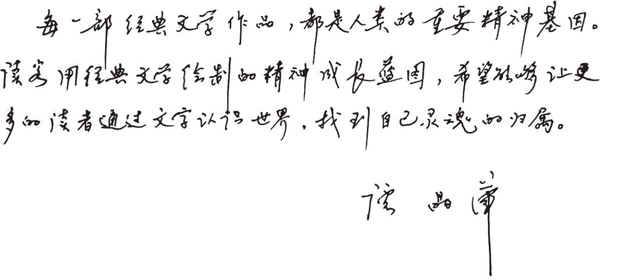 每一部经典文学作品，都是人类的重要精神基因。
读客用经典文学绘制的精神成长蓝图，希望能够让更
多的读者通过文字认识世界，找到自己灵魂的归属。